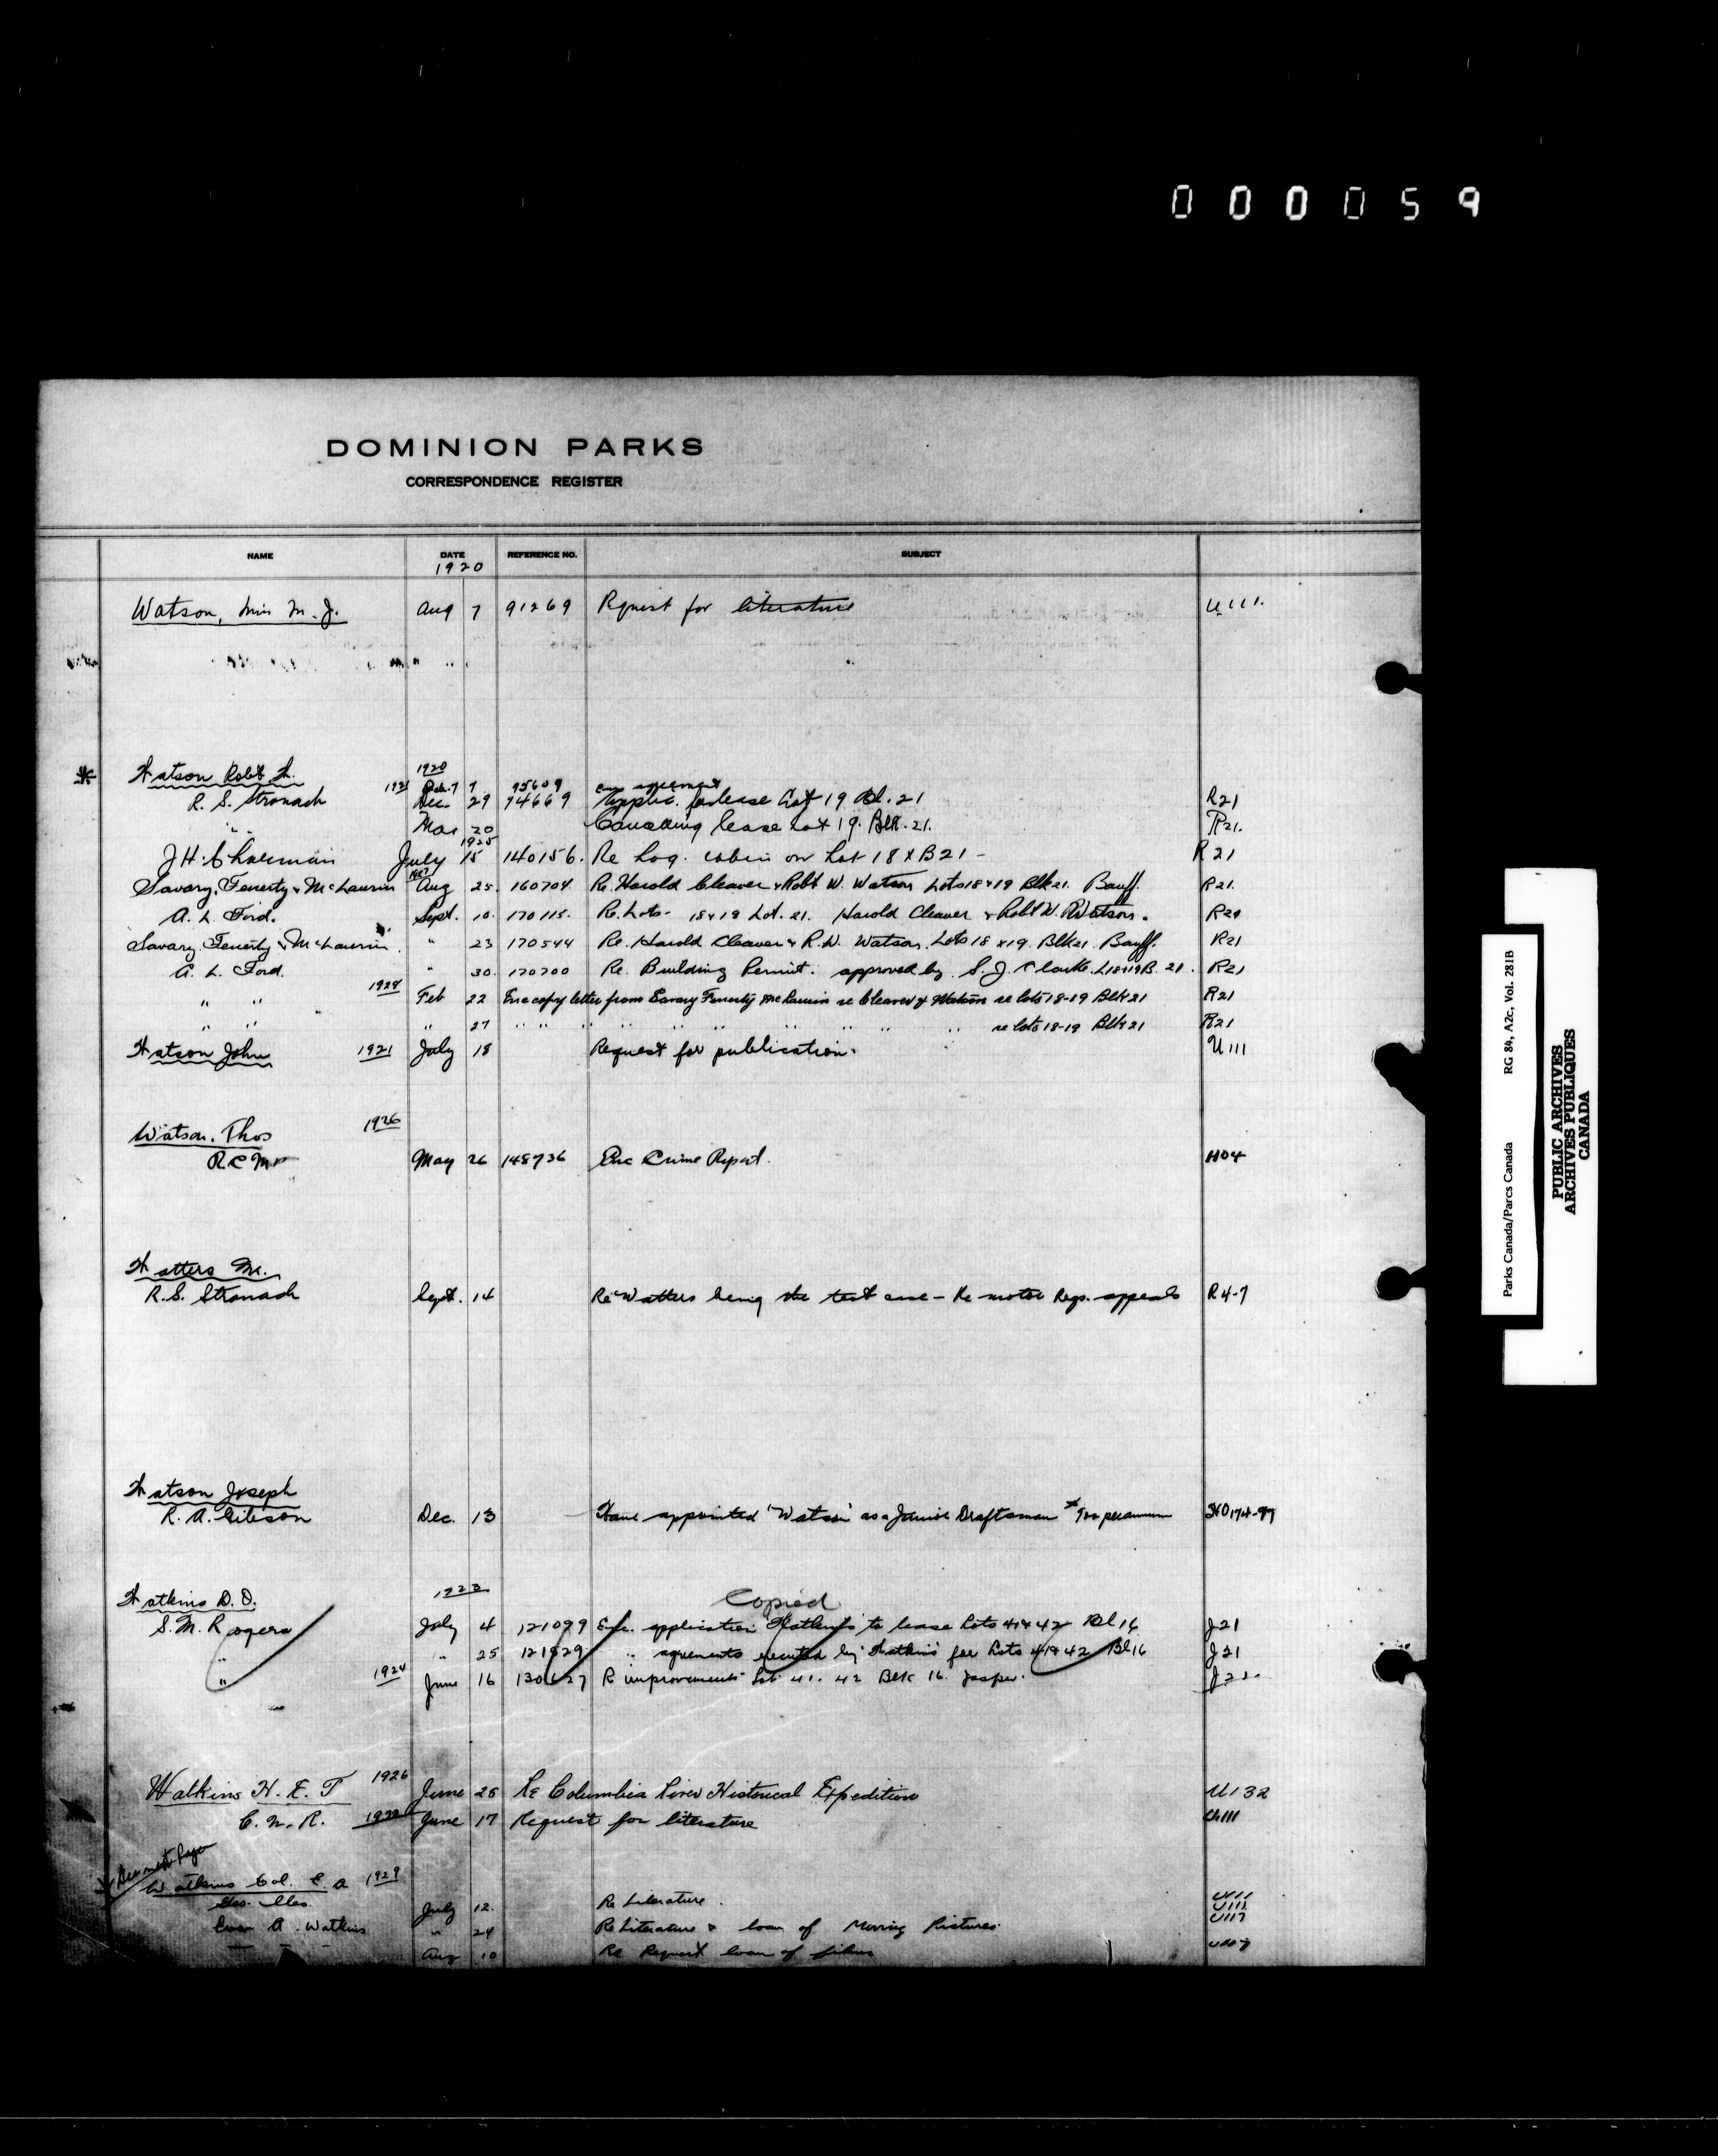 000059
DOMINION PARKS
CORRESPONDENCE REGISTER
NAME DATE REFERENCE NO. SUBJECT
1920
Watson, Miss M. J. Aug 7 91269 Request for literature U111.
Watson Robt W. 1920
1921 7 95609 agreement
R. S. Stronach Dec. 29 94669 Applic. for lease Lot 19 Bl. 21 R21
" " Mar 20 Cancelling lease Lot 19. Blk. 21. R21.
1925
J H. July 15 140156. Re Log. cabin on Lot 18 X B21 - R21
Savary, Fenerty & McLaurin 1927 Aug 25. 160704 Re. Harold Cleaver & Robt W. Watson Lots 18 & 19 Blk 21. Banff. R21.
A. L. Ford. Sept. 10. 170115. Re. Lots- 18 & 19 Lot. 21. Harold Cleaver & Robt W. Watson. R21
Savary, Fenerty & McLaurin " 23 170544 Re. Harold Cleaver & R.W. Watson. Lots 18 & 19. Blk 21. Banff. R21
A. L. Ford. " 30. 170700 Re. Building Permit. approved by S. J. Clarke. L18&19 B. 21. R21
" " 1928 Feb 22 Enc copy letter from Savary Fenerty McLaurin re Cleaver & Watson re lots 18-19 Blk 21 R21
" " " 27 " " " " " " " " " re lots 18-19 Blk 21 R21
Watson John 1921 July 18 Request for publication. U111
Watson. Thos 1926
R C M P May 26 148736 Enc Crime Report. H04
Watters Mr.
R. S. Stronach Sept. 14 Re "Watters being the test case - Re motor Regs. appeals R4-7
Watson Joseph
R. A. Gibson Dec. 13 Have appointed "Watson" as a Junior Draftsman per annum
Watkins D. D. 1923 Copied
S. M. Rogers July 4 121099 Enc. application "Watkins" to lease Lots 41 & 42 Bl 16 J21
" " 25 121529 " agreements executed by "Watkins" for Lots 41 & 42 Bl 16 J21
" 1924 June 16 130627 R improvements Lot 41. 42 Blk 16. Jasper. J21.
Watkins H. E. T 1926 June 25 Re Columbia River Historical Expedition U132
C. N. R. June 17 Request for literature U111
See next Page
Watkins Col. E. A 1929
Geo. Iles. July 12. Re Literature. U111
A. Watkins " 24 Re Literature & loan of Moving Pictures. U117
Aug 10 Re Request loan of films
Parks Canada/Parcs Canada RG 84, A2c, Vol. 281B
PUBLIC ARCHIVES
ARCHIVES PUBLIQUES
CANADA